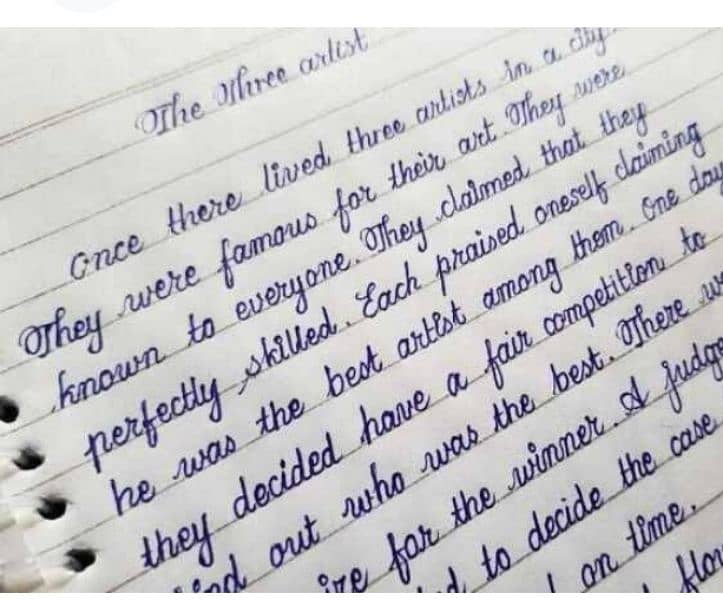 The Three artist
Once there lived three artists in a city.
They were famous for their art. They were
known to everyone. They claimed that they
perfectly skilled. Each praised oneself claiming
he was the best artist among them. One day
they decided have a fair competition to
out who was the best. There
for the winner. A judge
to decide the case
on time.